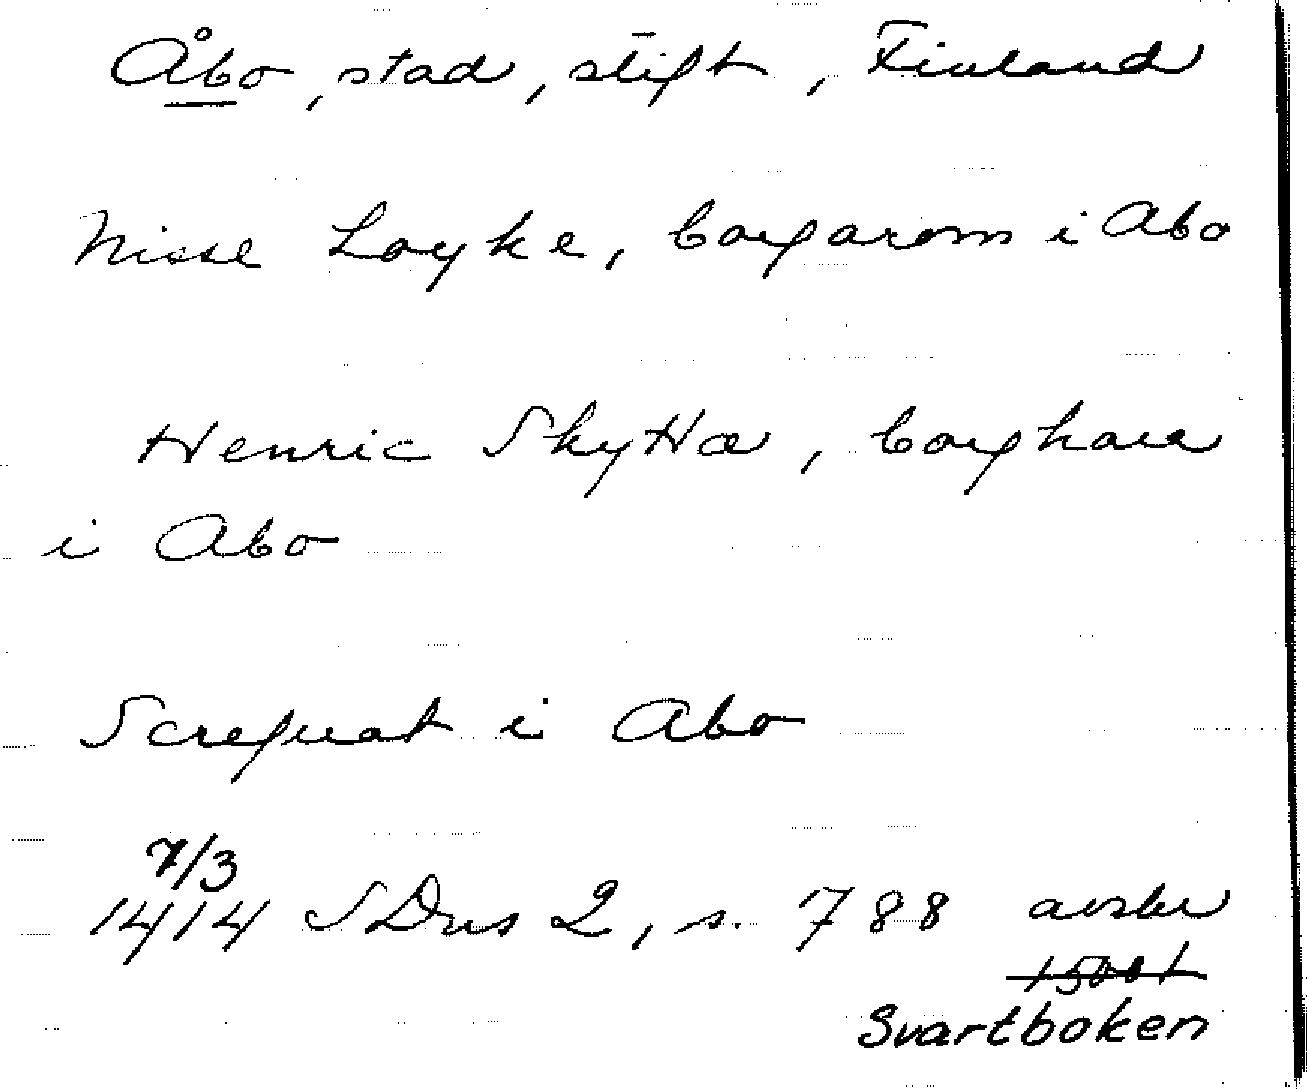 Åbo, stad, stift, Finland
Nisse Loyke, borgarom i Abo
Henric Skyttæ, borghare
i Abo
Screfuat i Abo
7/3
1414 SDns 2, s. 788 avskr
Svartboken